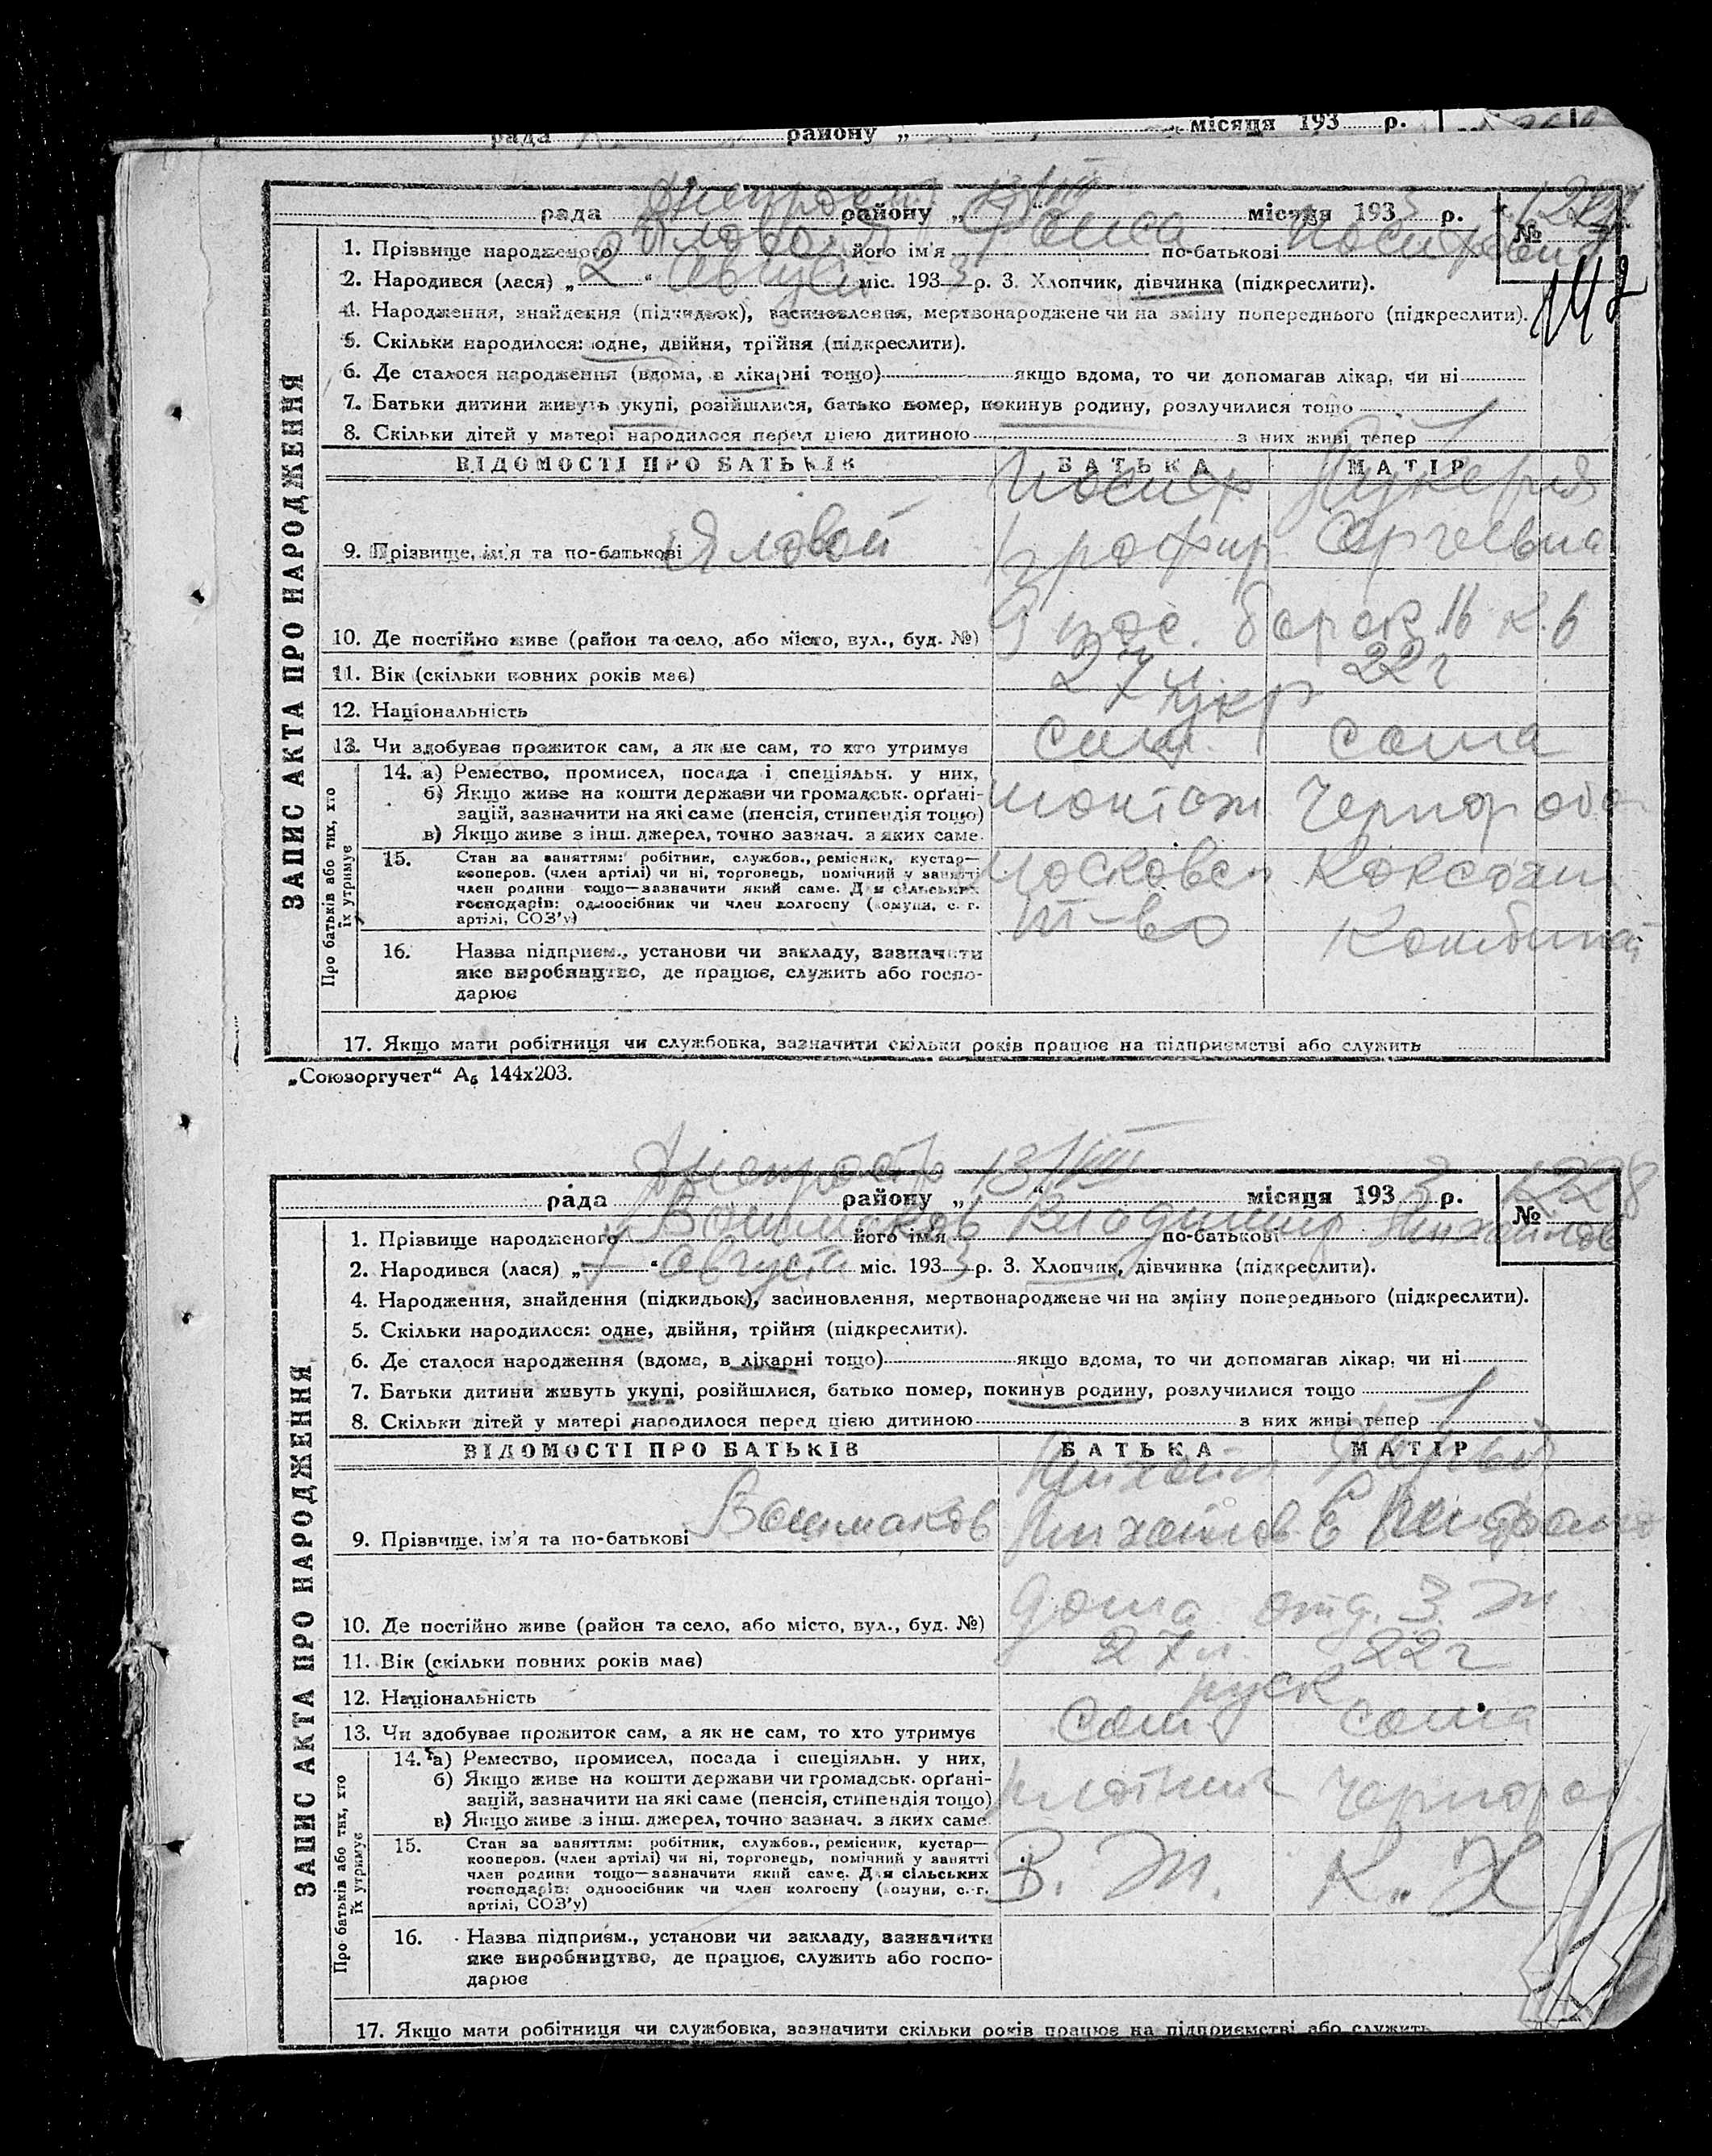 рада района „ “ місяця 193 р.
рада Днепрострой району „13/VIII“ місяця 1933 р. № 1227
1. Прізвище народженого Яловая його ім'я Раиса по-батькові Иосифовна
142
2. Народився (лася) „2“ Август міс. 1933 р. 3. Хлопчик, дівчинка (підкреслити).
4. Народження, знайдення (підкидьок), засиновлення, мертвонароджене чи на зміну попереднього (підкреслити).
5. Скільки народилося: одне, двійня, трійня (підкреслити).
6. Де сталося народження (вдома, в лікарні тощо) якщо вдома, то чи допомагав лікар, чи ні
7. Батьки дитини живуть укупі, розійшлися, батько помер, покинув родину, розлучилися тощо
8. Скільки дітей у матері народилося перед цією дитиною з них живі тепер 1
ЗАПИС АКТА ПРО НАРОДЖЕННЯ
ВІДОМОСТІ ПРО БАТЬКІВ БАТЬКА МАТІР
Иосиф Лукерия
9. Прізвище, ім'я та по-батькові Яловой Сергеевна
10. Де постійно живе (район та село, або місто, вул., буд. №) барак 16 к. 6
11. Вік (скільки повних років має) 27 л. 22 г
12. Національність укр
13. Чи здобуває прожиток сам, а як не сам, то хто утримує сам сама
Про батьків або тих, хто їх утримує
14. а) Ремество, промисел, посада і спеціяльн. у них,
б) Якщо живе на кошти держави чи громадськ. орґані-
зацій, зазначити на які саме (пенсія, стипендія тощо) монтаж Чернораб
в) Якщо живе з інш. джерел, точно зазнач. з яких саме
15. Стан за заняттям: робітник, службов., ремісник, кустар—
кооперов. (член артілі) чи ні, торговець, помічний у занятті
член родини тощо—зазначити який саме. Для сільських
господарів: одноосібник чи член колгоспу (комуни, с.-г.
артілі, СОЗ'у)
16. Назва підприєм., установи чи закладу, зазначити
яке виробництво, де працює, служить або госпо-
дарює
Комбинат
17. Якщо мати робітниця чи службовка, зазначити скільки років працює на підприємстві або служить
„Союзоргучет“ А₆ 144х203.
рада Днепростр району „13/VIII“ місяця 1933 р. № 1228
1. Прізвище народженого Вашмаков його ім'я Владимир по-батькові Михайлов
2. Народився (лася) „7“ августа міс. 1933 р. 3. Хлопчик, дівчинка (підкреслити).
4. Народження, знайдення (підкидьок), засиновлення, мертвонароджене чи на зміну попереднього (підкреслити).
5. Скільки народилося: одне, двійня, трійня (підкреслити).
6. Де сталося народження (вдома, в лікарні тощо) якщо вдома, то чи допомагав лікар, чи ні
7. Батьки дитини живуть укупі, розійшлися, батько помер, покинув родину, розлучилися тощо
8. Скільки дітей у матері народилося перед цією дитиною з них живі тепер 1
ЗАПИС АКТА ПРО НАРОДЖЕННЯ
ВІДОМОСТІ ПРО БАТЬКІВ БАТЬКА МАТІР
Михаил
9. Прізвище, ім'я та по-батькові Вашмаков Михайлов
10. Де постійно живе (район та село, або місто, вул., буд. №) дома отд. 3
11. Вік (скільки повних років має) 27 л. 22 г
12. Національність руск
13. Чи здобуває прожиток сам, а як не сам, то хто утримує сам сама
Про батьків або тих, хто їх утримує
14. а) Ремество, промисел, посада і спеціяльн. у них,
б) Якщо живе на кошти держави чи громадськ. орґані-
зацій, зазначити на які саме (пенсія, стипендія тощо) плотник Чернораб
в) Якщо живе з інш. джерел, точно зазнач. з яких саме
15. Стан за заняттям: робітник, службов., ремісник, кустар—
кооперов. (член артілі) чи ні, торговець, помічний у занятті
член родини тощо—зазначити який саме. Для сільських
господарів: одноосібник чи член колгоспу (комуни, с.-г.
артілі, СОЗ'у)
В. Ж. К. Х
16. Назва підприєм., установи чи закладу, зазначити
яке виробництво, де працює, служить або госпо-
дарює
17. Якщо мати робітниця чи службовка, зазначити скільки років працює на підприємстві або служить